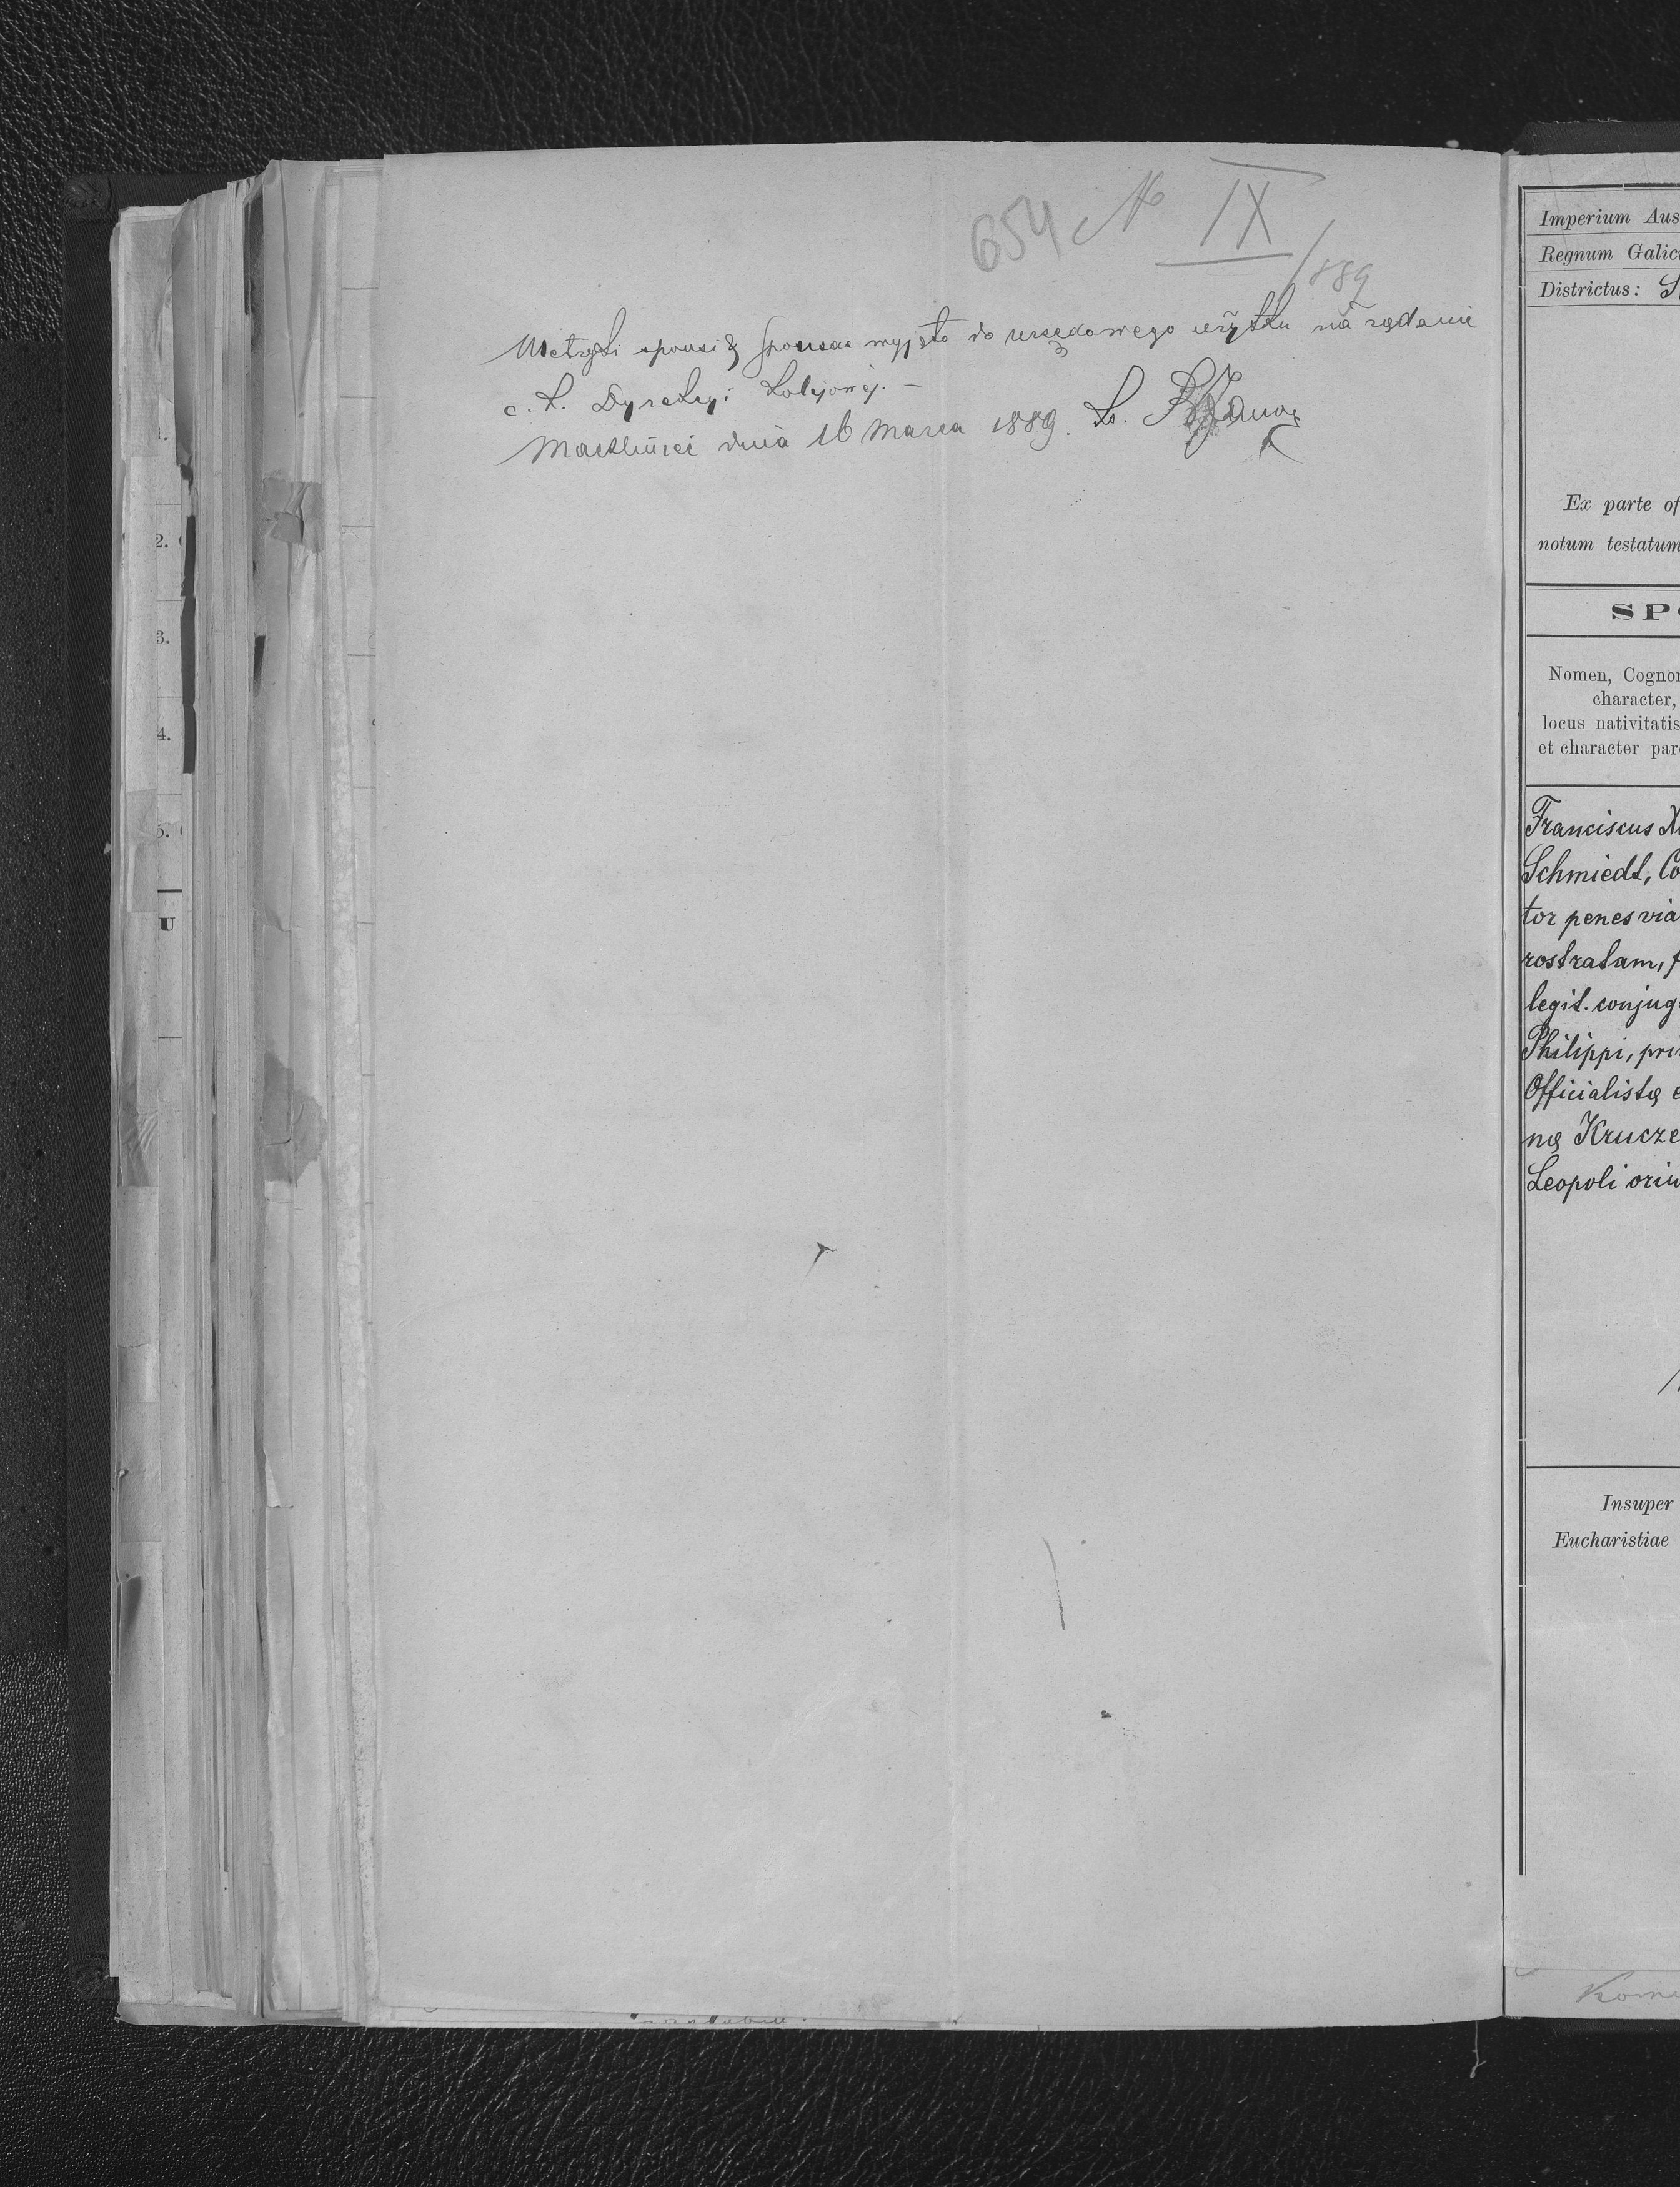 654 № IX/889
Metryki sponsi & sponsae wyjęto do urzędowego użytku na żądanie
c. k. Dyrekcyi kolejowej. —
dnia 16 marca 1889. ks.
1.
2.
3.
4.
5.
U
Imperium Aus
Regnum Galic
Districtus: S
Ex parte of
notum testatum
SPO
Nomen, Cogno
character,
locus nativitatis
et character par
Franciscus X
Schmiedt, Co
tor penes via
rostratam, f
legit. conjug
Philippi, pri
Officialistę e
nę Krucze
Leopoli oriu
Insuper
Eucharistiae